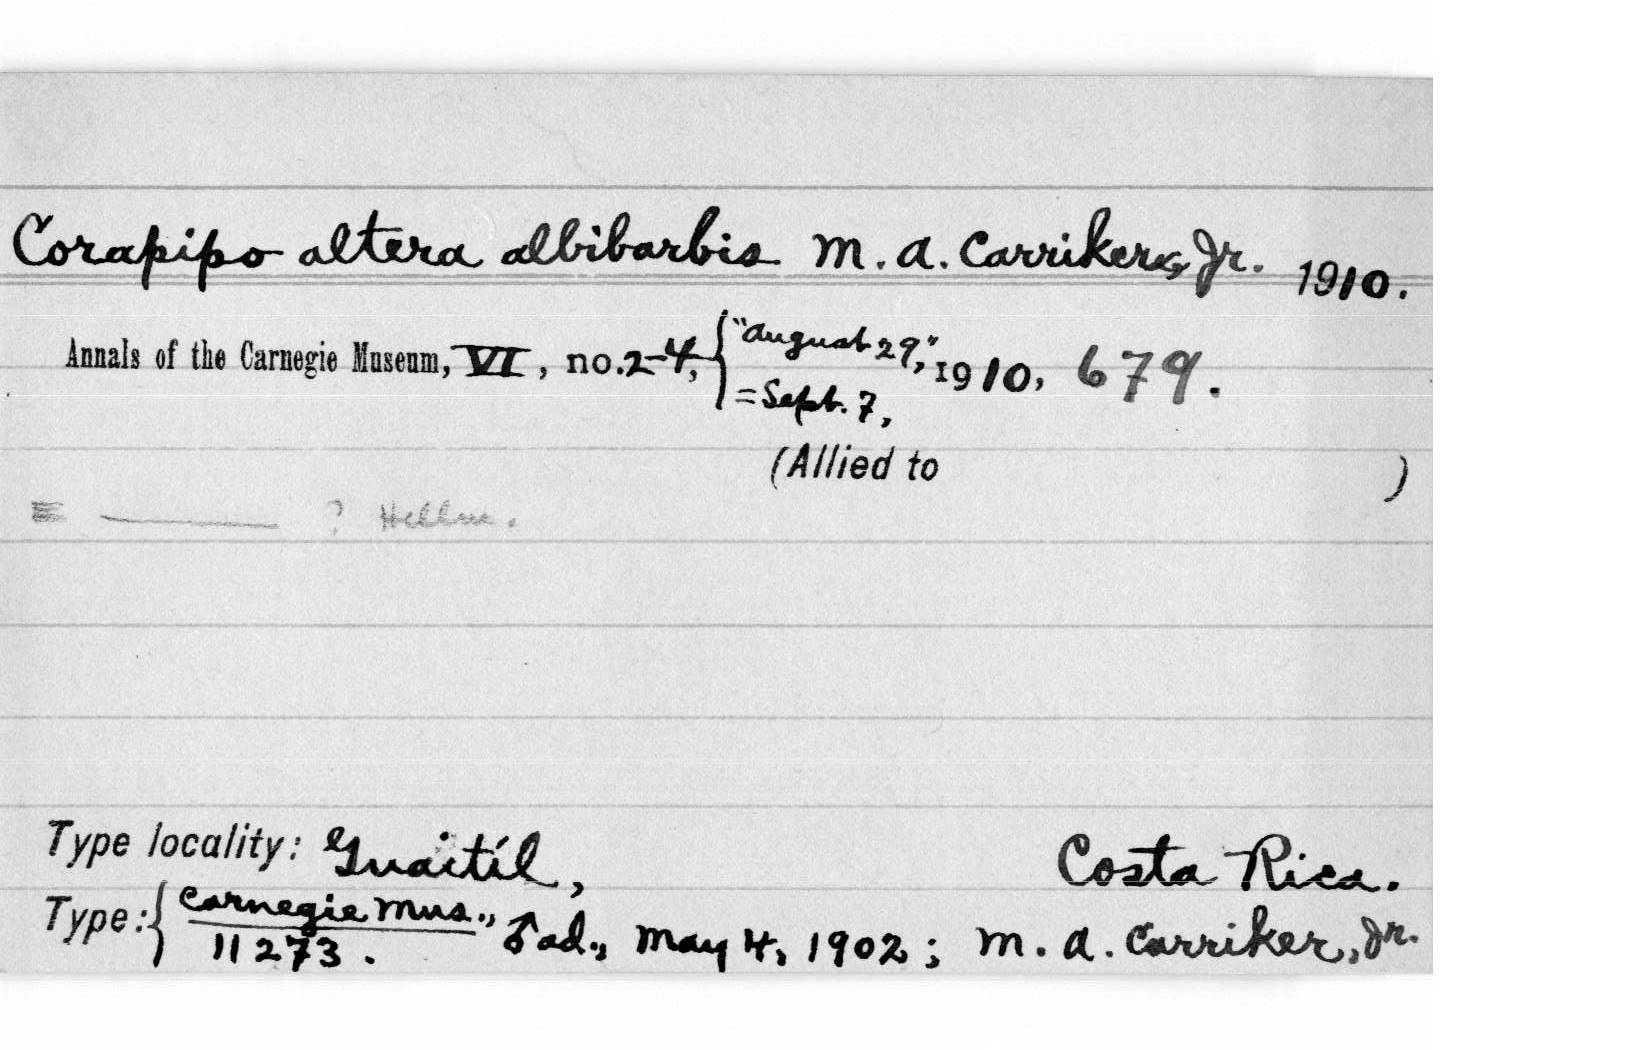 Corapipo altera albibarbis M. A. Carriker, Jr. 1910.
Annals of the Carnegie Museum, VI, no. 2-4, { "August 29," 1910, 679.
= Sept. 7,
(Allied to )
≡ ——— ? Hellm.
Type locality: Guaitíl, Costa Rica.
Type: { Carnegie Mus., ♂ ad., May 4, 1902; M. A. Carriker, Jr.
11273.